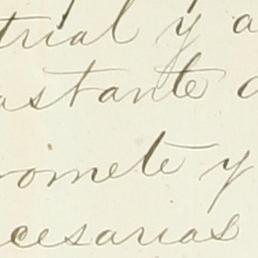 trial y a
astante
romete y
cesarias